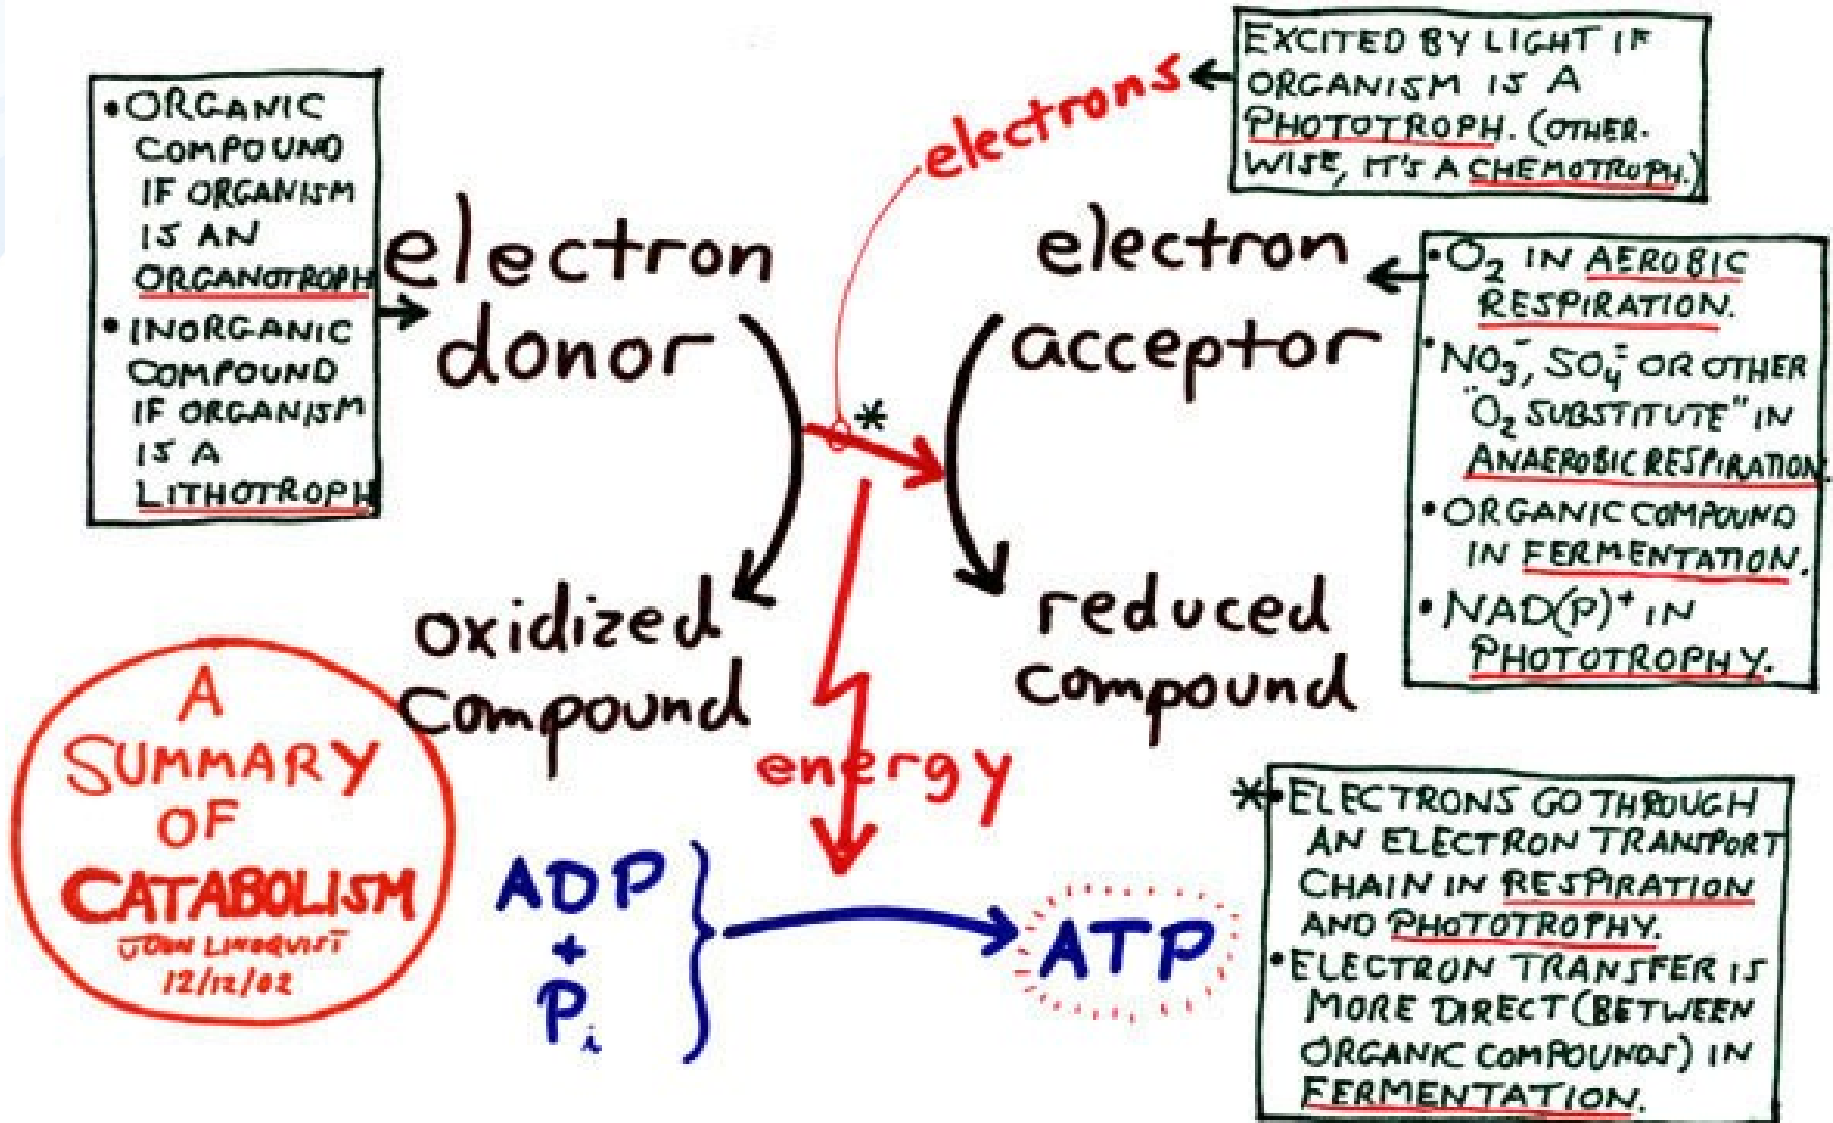 • ORGANIC
COMPOUND
IF ORGANISM
IS AN
ORGANOTROPH
• INORGANIC
COMPOUND
IF ORGANISM
IS A
LITHOTROPH
electron
donor
oxidized
compound
electrons
EXCITED BY LIGHT IF
ORGANISM IS A
PHOTOTROPH. (OTHER-
WISE, IT'S A CHEMOTROPH.)
electron
acceptor
reduced
compound
• O₂ IN AEROBIC
RESPIRATION.
• NO₃⁻, SO₄⁼ OR OTHER
"O₂ SUBSTITUTE" IN
ANAEROBIC RESPIRATION.
• ORGANIC COMPOUND
IN FERMENTATION.
• NAD(P)⁺ IN
PHOTOTROPHY.
*
energy
ADP
+
Pi
ATP
A
SUMMARY
OF
CATABOLISM
JOHN LINDQUIST
12/12/02
* • ELECTRONS GO THROUGH
AN ELECTRON TRANSPORT
CHAIN IN RESPIRATION
AND PHOTOTROPHY.
• ELECTRON TRANSFER IS
MORE DIRECT (BETWEEN
ORGANIC COMPOUNDS) IN
FERMENTATION.